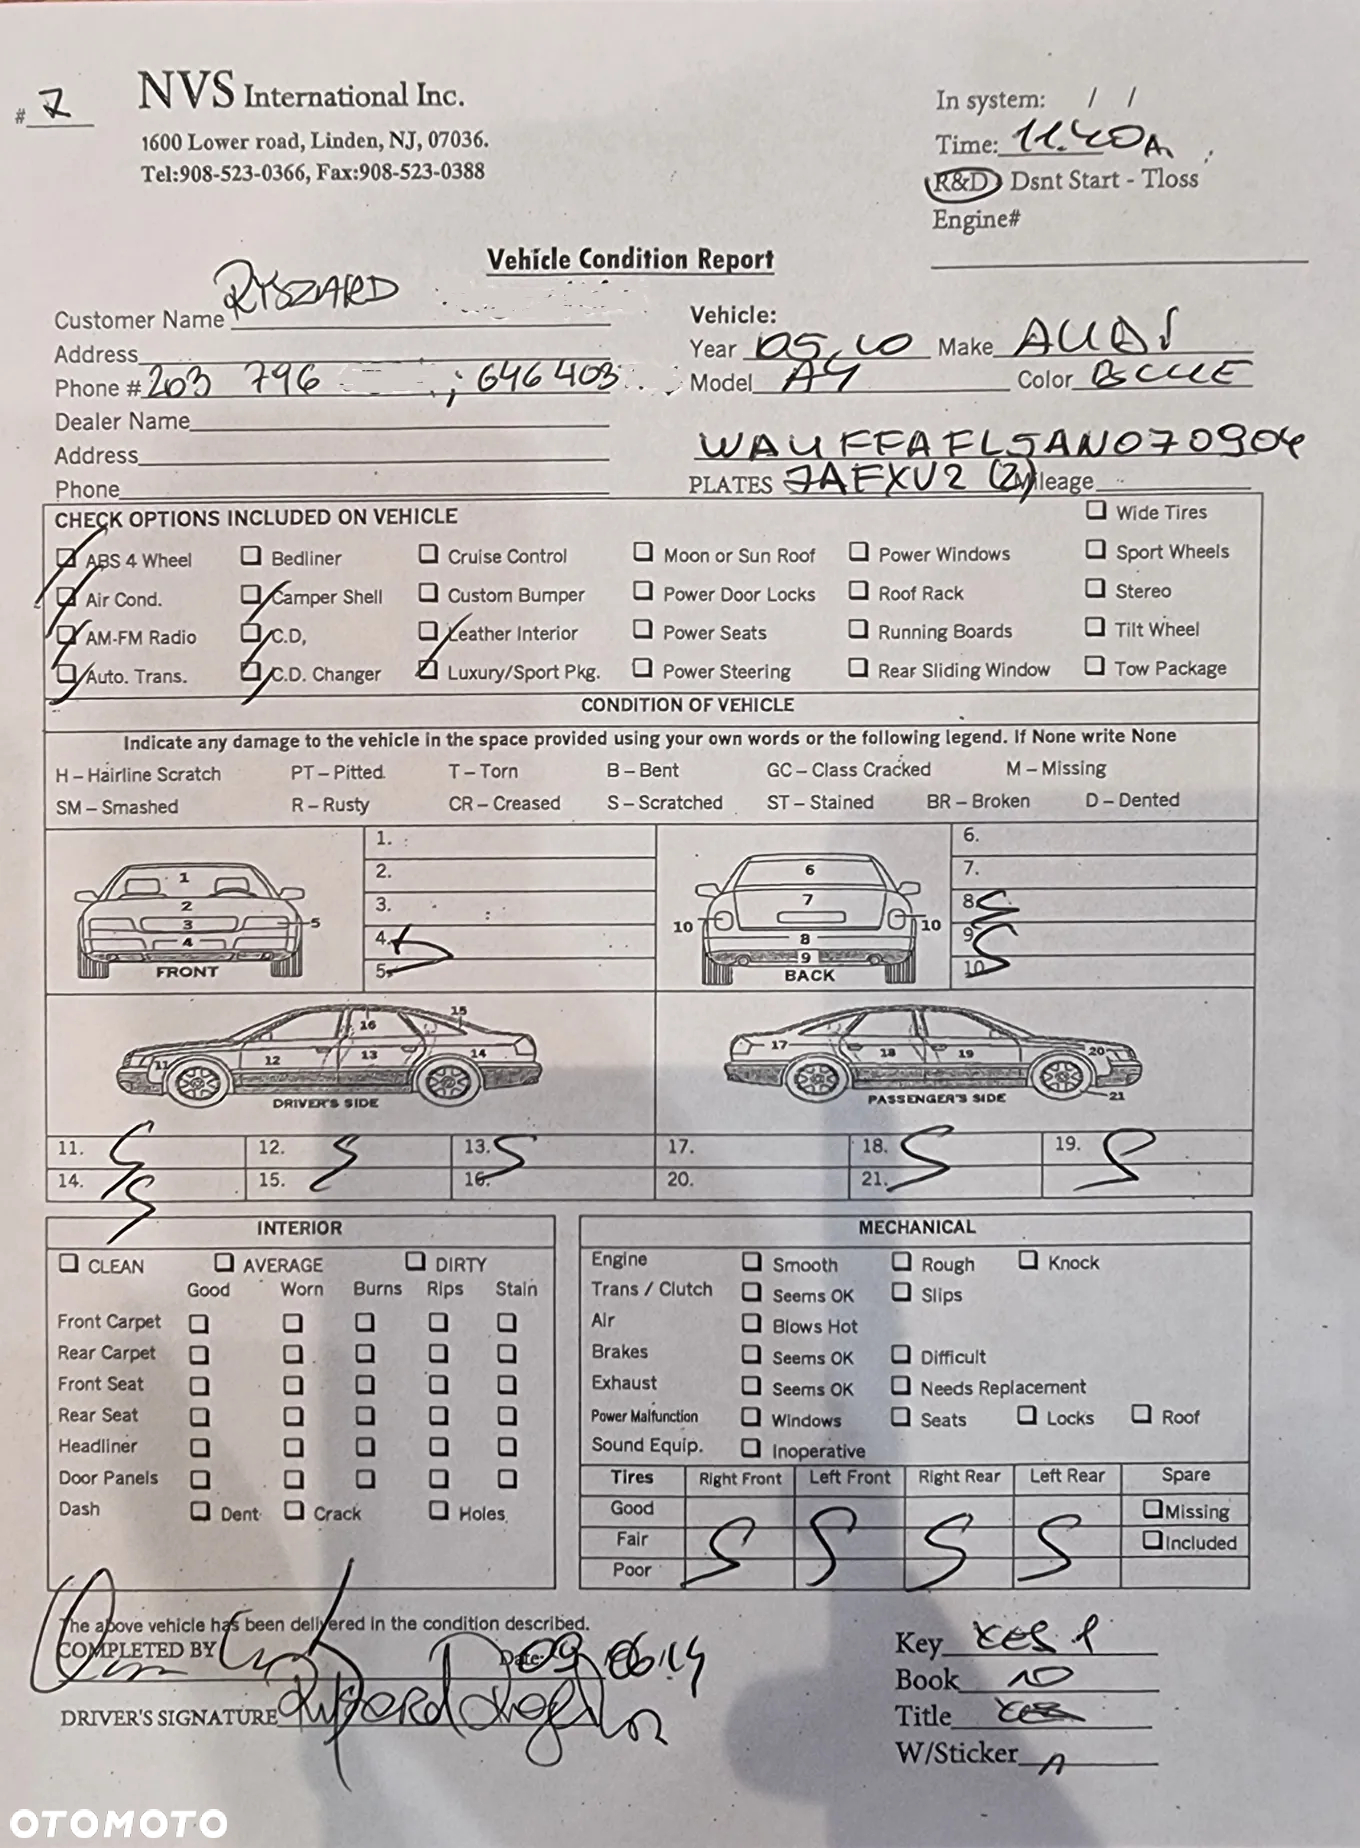 # 7
NVS International Inc.
1600 Lower road, Linden, NJ, 07036.
Tel:908-523-0366, Fax:908-523-0388
In system: / /
Time: 11.40 A
R&D Dsnt Start - Tloss
Engine#
Vehicle Condition Report
Customer Name RYSZARD
Address
Phone # 203 796 ; 646 403
Dealer Name
Address
Phone
Vehicle:
Year 05,10 Make AUDI
Model A4 Color BLUE
WAUFFAFL5AN070904
PLATES 7AEXU2 (2) Mileage
CHECK OPTIONS INCLUDED ON VEHICLE
Wide Tires
ABS 4 Wheel Bedliner Cruise Control Moon or Sun Roof Power Windows Sport Wheels
Air Cond. Camper Shell Custom Bumper Power Door Locks Roof Rack Stereo
AM-FM Radio C.D, Leather Interior Power Seats Running Boards Tilt Wheel
Auto. Trans. C.D. Changer Luxury/Sport Pkg. Power Steering Rear Sliding Window Tow Package
CONDITION OF VEHICLE
Indicate any damage to the vehicle in the space provided using your own words or the following legend. If None write None
H – Hairline Scratch PT – Pitted T – Torn B – Bent GC – Class Cracked M – Missing
SM – Smashed R – Rusty CR – Creased S – Scratched ST – Stained BR – Broken D – Dented
1 2 3 4 5
FRONT
1.
2.
3.
4.
5.
6 7 10 10 8 9
BACK
6.
7.
8. S
9. S
10.
15 16 11 12 13 14
DRIVER'S SIDE
17 18 19 20 21
PASSENGER'S SIDE
11. S 12. S 13. S 17. 18. S 19. S
14. S 15. 16. 20. 21.
INTERIOR
CLEAN AVERAGE DIRTY
Good Worn Burns Rips Stain
Front Carpet
Rear Carpet
Front Seat
Rear Seat
Headliner
Door Panels
Dash Dent Crack Holes
MECHANICAL
Engine Smooth Rough Knock
Trans / Clutch Seems OK Slips
Air Blows Hot
Brakes Seems OK Difficult
Exhaust Seems OK Needs Replacement
Power Malfunction Windows Seats Locks Roof
Sound Equip. Inoperative
Tires Right Front Left Front Right Rear Left Rear Spare
Good Missing
Fair S S S S Included
Poor
The above vehicle has been delivered in the condition described.
COMPLETED BY Date: 09.06.14
DRIVER'S SIGNATURE Ryszard
Key YES 1
Book NO
Title YES
W/Sticker
OTOMOTO